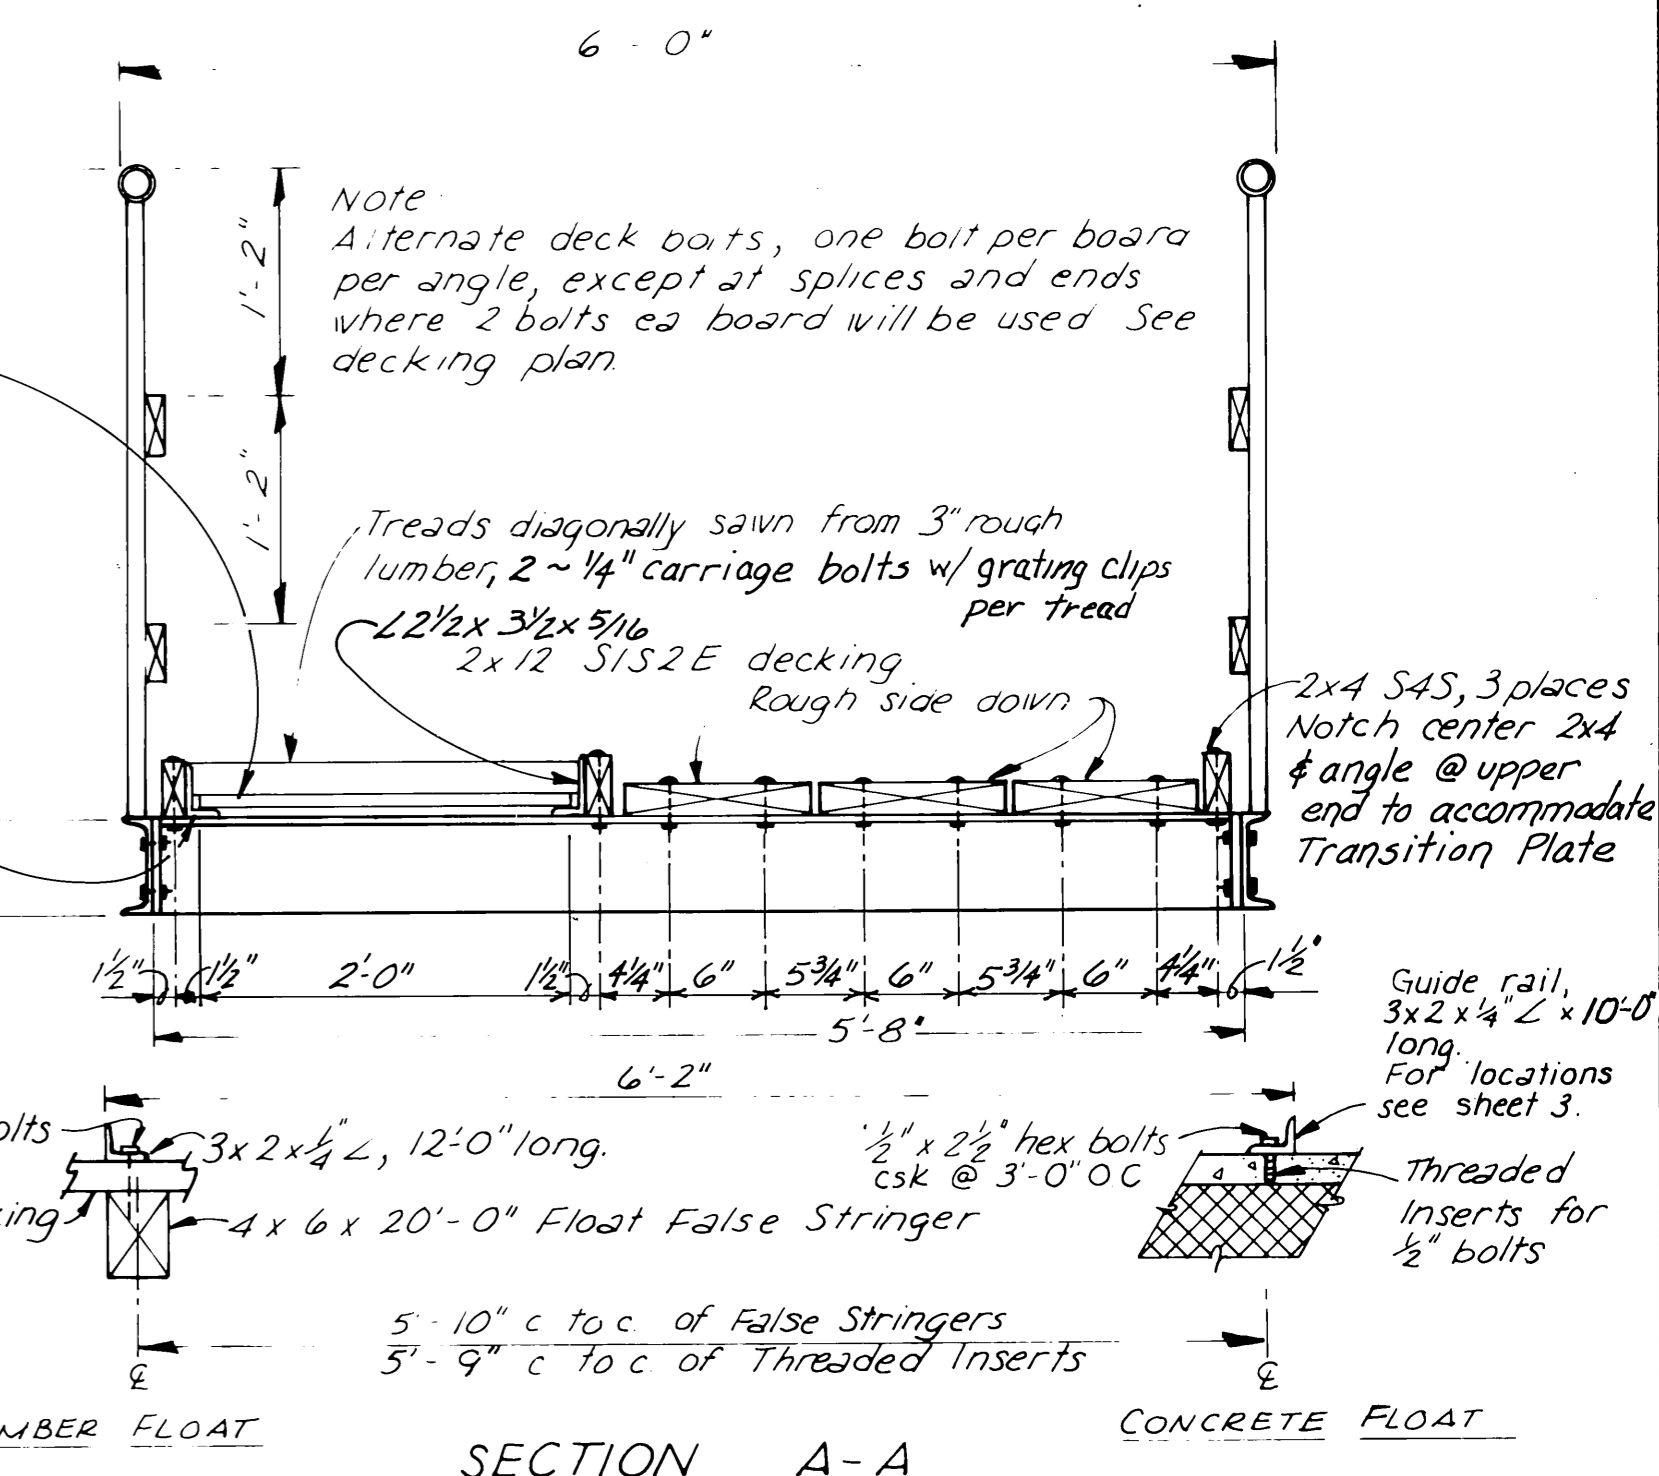 6 - 0"
1'-2"
1'-2"
Note
Alternate deck bolts, one bolt per board
per angle, except at splices and ends
where 2 bolts ea board will be used See
decking plan.
Treads diagonally sawn from 3" rough
lumber, 2 ~ 1/4" carriage bolts w/ grating clips
per tread
∠2 1/2 x 3 1/2 x 5/16
2 x 12 S1S2E decking
Rough side down
2x4 S4S, 3 places
Notch center 2x4
& angle @ upper
end to accommodate
Transition Plate
1 1/2" 1 1/2" 2'-0" 1 1/2" 4 1/4" 6" 5 3/4" 6" 5 3/4" 6" 4 1/4" 1 1/2"
5'-8"
6'-2"
Guide rail,
3 x 2 x 1/4" ∠ x 10'-0"
long.
For locations
see sheet 3.
olts
3 x 2 x 1/4" ∠, 12'-0" long.
1/2" x 2 1/2" hex bolts
csk @ 3'-0" O C
Threaded
Inserts for
1/2" bolts
ing
4 x 6 x 20'-0" Float False Stringer
5'-10" c to c. of False Stringers
5'-9" c to c. of Threaded Inserts
℄
℄
MBER FLOAT
CONCRETE FLOAT
SECTION A-A